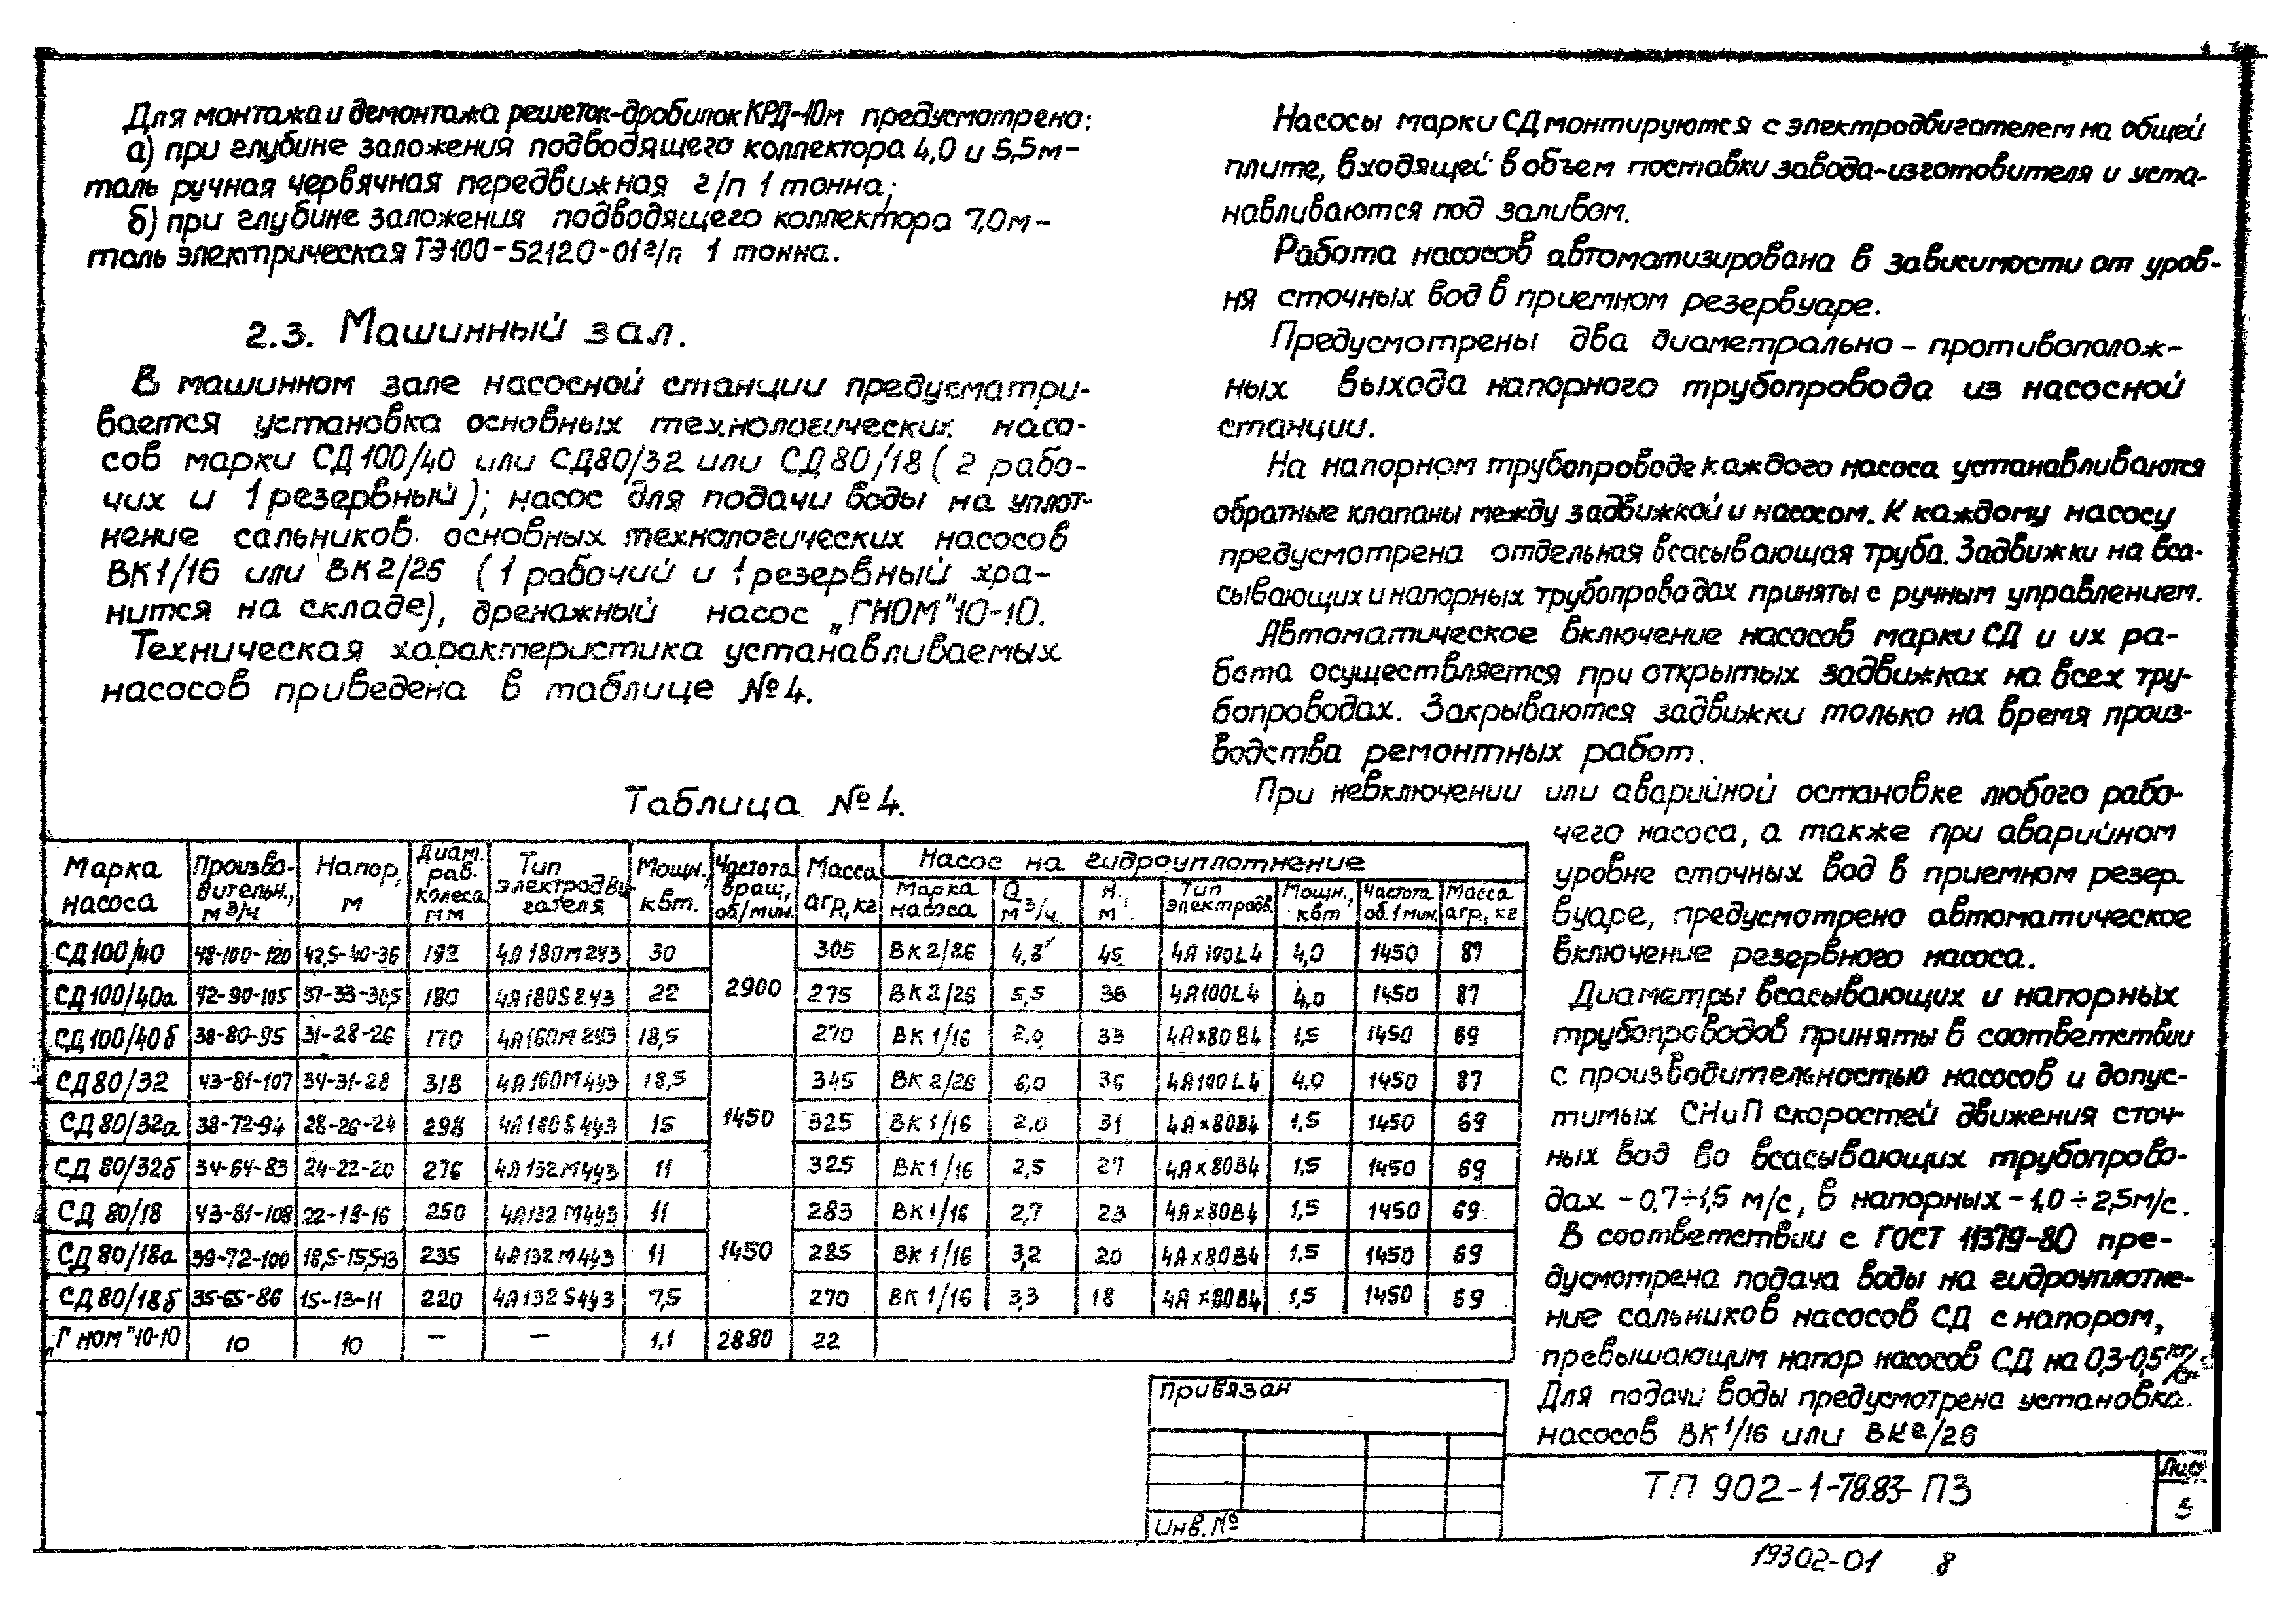 Для монтажа и демонтажа решеток-дробилок КРД-10м предусмотрено:
а) при глубине заложения подводящего коллектора 4,0 и 5,5м-
таль ручная червячная передвижная г/п 1 тонна;
б) при глубине заложения подводящего коллектора 7,0м-
таль электрическая ТЭ100-52120-01 г/п 1 тонна.
2.3. Машинный зал.
В машинном зале насосной станции предусматри-
вается установка основных технологических насо-
сов марки СД100/40 или СД80/32 или СД80/18 (2 рабо-
чих и 1 резервный); насос для подачи воды на уплот-
нение сальников основных технологических насосов
ВК1/16 или ВК2/26 (1 рабочий и 1 резервный хра-
нится на складе), дренажный насос „ГНОМ" 10-10.
Техническая характеристика устанавливаемых
насосов приведена в таблице №4.
Таблица №4.
Марка насоса | Произво-дительн., м3/ч | Напор, м | Диам. раб. колеса мм | Тип электродви-гателя | Мощн., квт. | Частота вращ., об/мин. | Масса агр., кг | Насос на гидроуплотнение
Марка насоса | Q м3/ч. | Н, м. | Тип электродв. | Мощн., квт | Частота об. 1 мин. | Масса агр., кг
СД100/40 | 48-100-120 | 42,5-40-36 | 192 | 4А180М2У3 | 30 | 2900 | 305 | ВК2/26 | 4,8 | 45 | 4А100L4 | 4,0 | 1450 | 87
СД100/40а | 42-90-105 | 37-33-30,5 | 180 | 4А180S2У3 | 22 | 275 | ВК2/26 | 5,5 | 38 | 4А100L4 | 4,0 | 1450 | 87
СД100/40б | 38-80-95 | 31-28-26 | 170 | 4А160М2У3 | 18,5 | 270 | ВК1/16 | 2,0 | 33 | 4Ах80В4 | 1,5 | 1450 | 69
СД80/32 | 43-81-107 | 34-31-28 | 318 | 4А160М4У3 | 18,5 | 1450 | 345 | ВК2/26 | 6,0 | 36 | 4А100L4 | 4,0 | 1450 | 87
СД80/32а | 38-72-94 | 28-26-24 | 298 | 4А160S4У3 | 15 | 325 | ВК1/16 | 2,0 | 31 | 4Ах80В4 | 1,5 | 1450 | 69
СД80/32б | 34-64-83 | 24-22-20 | 276 | 4А132М4У3 | 11 | 325 | ВК1/16 | 2,5 | 27 | 4Ах80В4 | 1,5 | 1450 | 69
СД80/18 | 43-81-108 | 22-18-16 | 250 | 4А132М4У3 | 11 | 1450 | 283 | ВК1/16 | 2,7 | 23 | 4Ах80В4 | 1,5 | 1450 | 69
СД80/18а | 39-72-100 | 18,5-15,5-13 | 235 | 4А132М4У3 | 11 | 285 | ВК1/16 | 3,2 | 20 | 4Ах80В4 | 1,5 | 1450 | 69
СД80/18б | 35-65-86 | 15-13-11 | 220 | 4А132S4У3 | 7,5 | 270 | ВК1/16 | 3,3 | 18 | 4Ах80В4 | 1,5 | 1450 | 69
„Гном" 10-10 | 10 | 10 | — | — | 1,1 | 2880 | 22
Насосы марки СД монтируются с электродвигателем на общей
плите, входящей в объем поставки завода-изготовителя и уста-
навливаются под заливом.
Работа насосов автоматизирована в зависимости от уров-
ня сточных вод в приемном резервуаре.
Предусмотрены два диаметрально-противополож-
ных выхода напорного трубопровода из насосной
станции.
На напорном трубопроводе каждого насоса устанавливаются
обратные клапаны между задвижкой и насосом. К каждому насосу
предусмотрена отдельная всасывающая труба. Задвижки на вса-
сывающих и напорных трубопроводах приняты с ручным управлением.
Автоматическое включение насосов марки СД и их ра-
бота осуществляется при открытых задвижках на всех тру-
бопроводах. Закрываются задвижки только на время произ-
водства ремонтных работ.
При невключении или аварийной остановке любого рабо-
чего насоса, а также при аварийном
уровне сточных вод в приемном резер-
вуаре, предусмотрено автоматическое
включение резервного насоса.
Диаметры всасывающих и напорных
трубопроводов приняты в соответствии
с производительностью насосов и допус-
тимых СНиП скоростей движения сточ-
ных вод во всасывающих трубопрово-
дах -0,7÷1,5 м/с, в напорных -1,0÷2,5м/с.
В соответствии с ГОСТ 11379-80 пре-
дусмотрена подача воды на гидроуплотне-
ние сальников насосов СД с напором,
превышающим напор насосов СД на 0,3-0,5
Для подачи воды предусмотрена установка
насосов ВК1/16 или ВК2/26
Привязан
Инв. №
ТП 902-1-78.83-ПЗ
Лист
5
19302-01 8